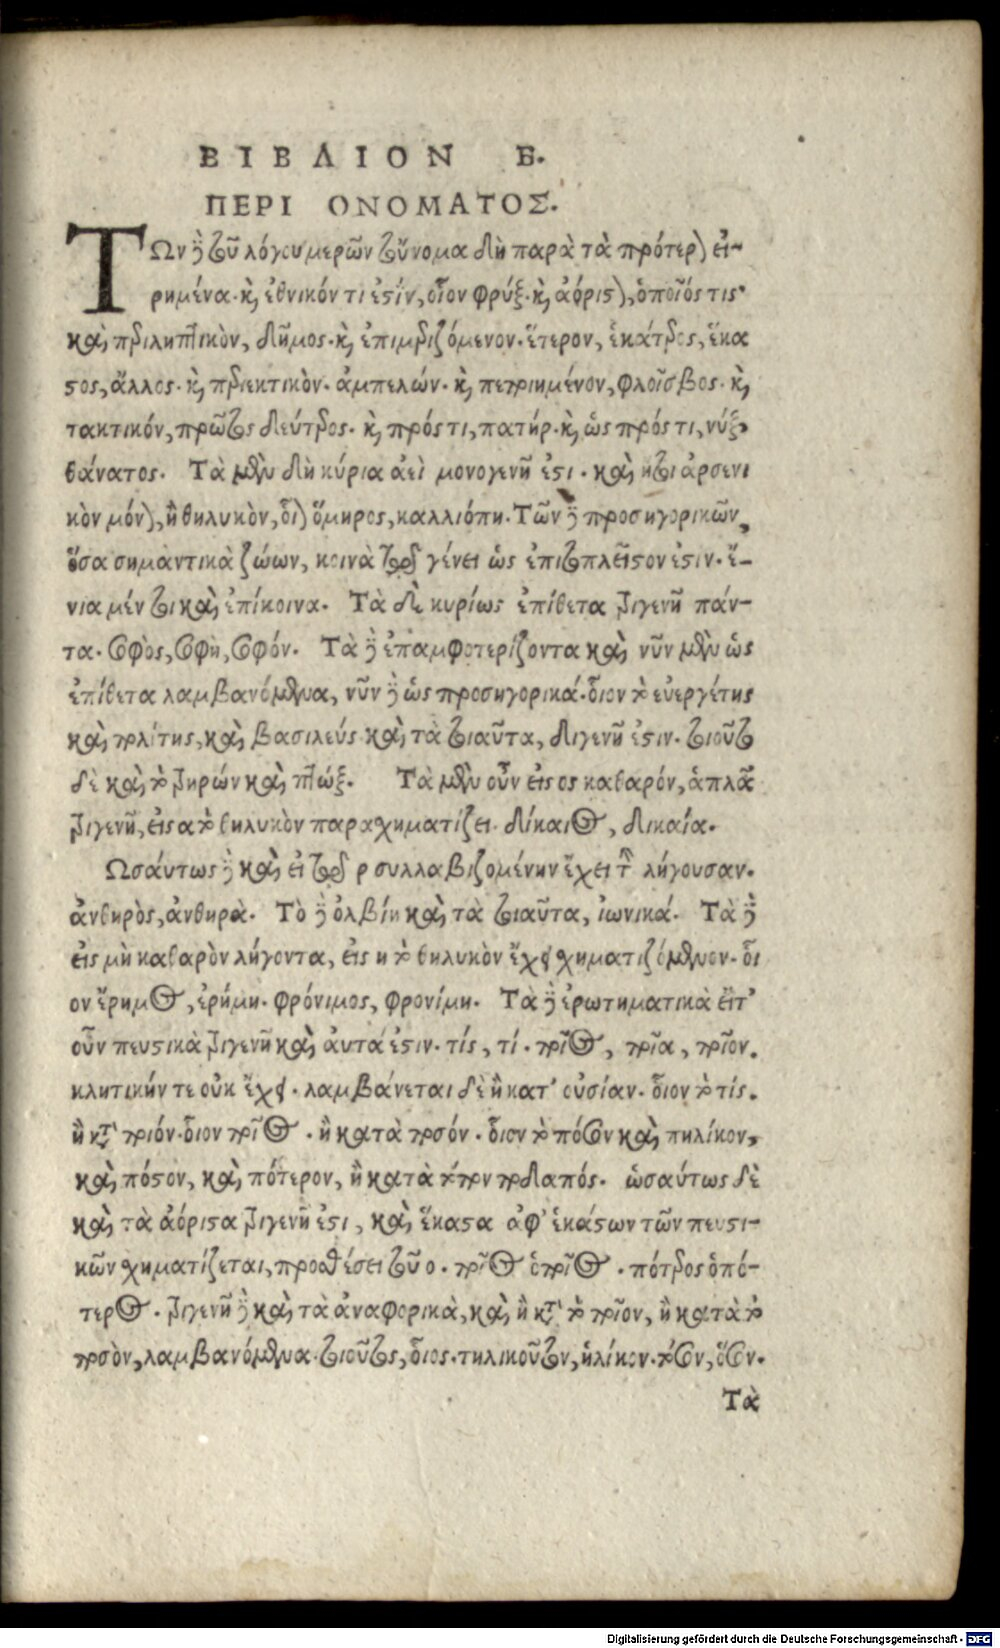 ΒΙΒΛΙΟΝ Β.
ΠΕΡΙ ΟΝΟΜΑΤΟΣ.
ΤΩν δὲ τοῦ λόγου μερῶν τοὔνομα δὴ παρὰ τὰ πρότερον εἰ-
ρημένα. καὶ ἐθνικόν τι ἐστίν, οἷον φρύξ. καὶ ἀόριστον, ὁποῖός τις.
καὶ περιληπτικὸν, δῆμος. καὶ ἐπιμεριζόμενον. ἕτερον, ἑκάτερος, ἕκα
στος, ἄλλος. καὶ περιεκτικὸν. ἀμπελών. καὶ πεποιημένον, φλοῖσβος. καὶ
τακτικόν, πρῶτος δεύτερος. καὶ πρός τι, πατήρ. καὶ ὡς πρός τι, νύξ
θάνατος. Τὰ μὲν δὴ κύρια ἀεὶ μονογενῆ ἐστι. καὶ ἤτοι ἀρσενι
κὸν μόνον, ἢ θηλυκὸν, οἷον ὅμηρος, καλλιόπη. Τῶν δὲ προσηγορικῶν,
ὅσα σημαντικὰ ζώων, κοινὰ τῷ γένει ὡς ἐπιτοπλεῖστον ἐστιν. ἔ-
νια μέν τοι καὶ ἐπίκοινα. Τὰ δὲ κυρίως ἐπίθετα τριγενῆ πάν-
τα. σοφὸς, σοφὴ, σοφόν. Τὰ δὲ ἐπαμφοτερίζοντα καὶ νῦν μὲν ὡς
ἐπίθετα λαμβανόμενα, νῦν δὲ ὡς προσηγορικά. οἷον τὸ εὐεργέτης
καὶ πολίτης, καὶ βασιλεύς καὶ τὰ τοιαῦτα, διγενῆ ἐστιν. τοιοῦτο
δὲ καὶ τὸ τρηρών καὶ πτώξ. Τὰ μὲν οὖν εἰς ος καθαρόν, ἁπλᾶ
τριγενῆ, εἰς α τὸ θηλυκὸν παρασχηματίζει. δίκαιος, δικαία.
Ωσάυτως δὲ καὶ εἰ τῷ ρ συλλαβιζομένην ἔχει τὴν λήγουσαν.
ἀνθηρὸς, ἀνθηρὰ. Τὸ δὲ ὀλβίη καὶ τὰ τοιαῦτα, ἰωνικά. Τὰ δὲ
εἰς μὴ καθαρὸν λήγοντα, εἰς η τὸ θηλυκὸν ἔχει σχηματιζόμενον. οἷ
ον ἔρημος, ἐρήμη. φρόνιμος, φρονίμη. Τὰ δὲ ἐρωτηματικὰ εἴτ'
οὖν πευστικὰ τριγενῆ καὶ ἀυτά ἐστιν. τίς, τί. ποῖος, ποῖα, ποῖον.
κλητικήν τε οὐκ ἔχει. λαμβάνεται δὲ ἢ κατ' οὐσίαν. οἷον τὸ τίς.
ἢ κατὰ ποιόν. οἷον ποῖος. ἢ κατὰ ποσόν. οἷον τὸ πόσον καὶ πηλίκον,
καὶ πόστον, καὶ πότερον, ἢ κατὰ τόπον ποδαπός. ὡσαύτως δὲ
καὶ τὰ ἀόριστα τριγενῆ ἐστι, καὶ ἕκαστα ἀφ' ἑκάστων τῶν πευστι-
κῶν σχηματίζεται, προσθέσει τοῦ ο. ποῖος ὁποῖος. πότερος ὁπό-
τερος. τριγενῆ δὲ καὶ τὰ ἀναφορικὰ, καὶ ἢ κατὰ τὸ ποῖον, ἢ κατὰ τὸ
ποσὸν, λαμβανόμενα. τοιοῦτος, οἷος. τηλικοῦτον, ἡλίκον. τόσον, ὅσον.
Τὰ
Digitalisierung gefördert durch die Deutsche Forschungsgemeinschaft - DFG